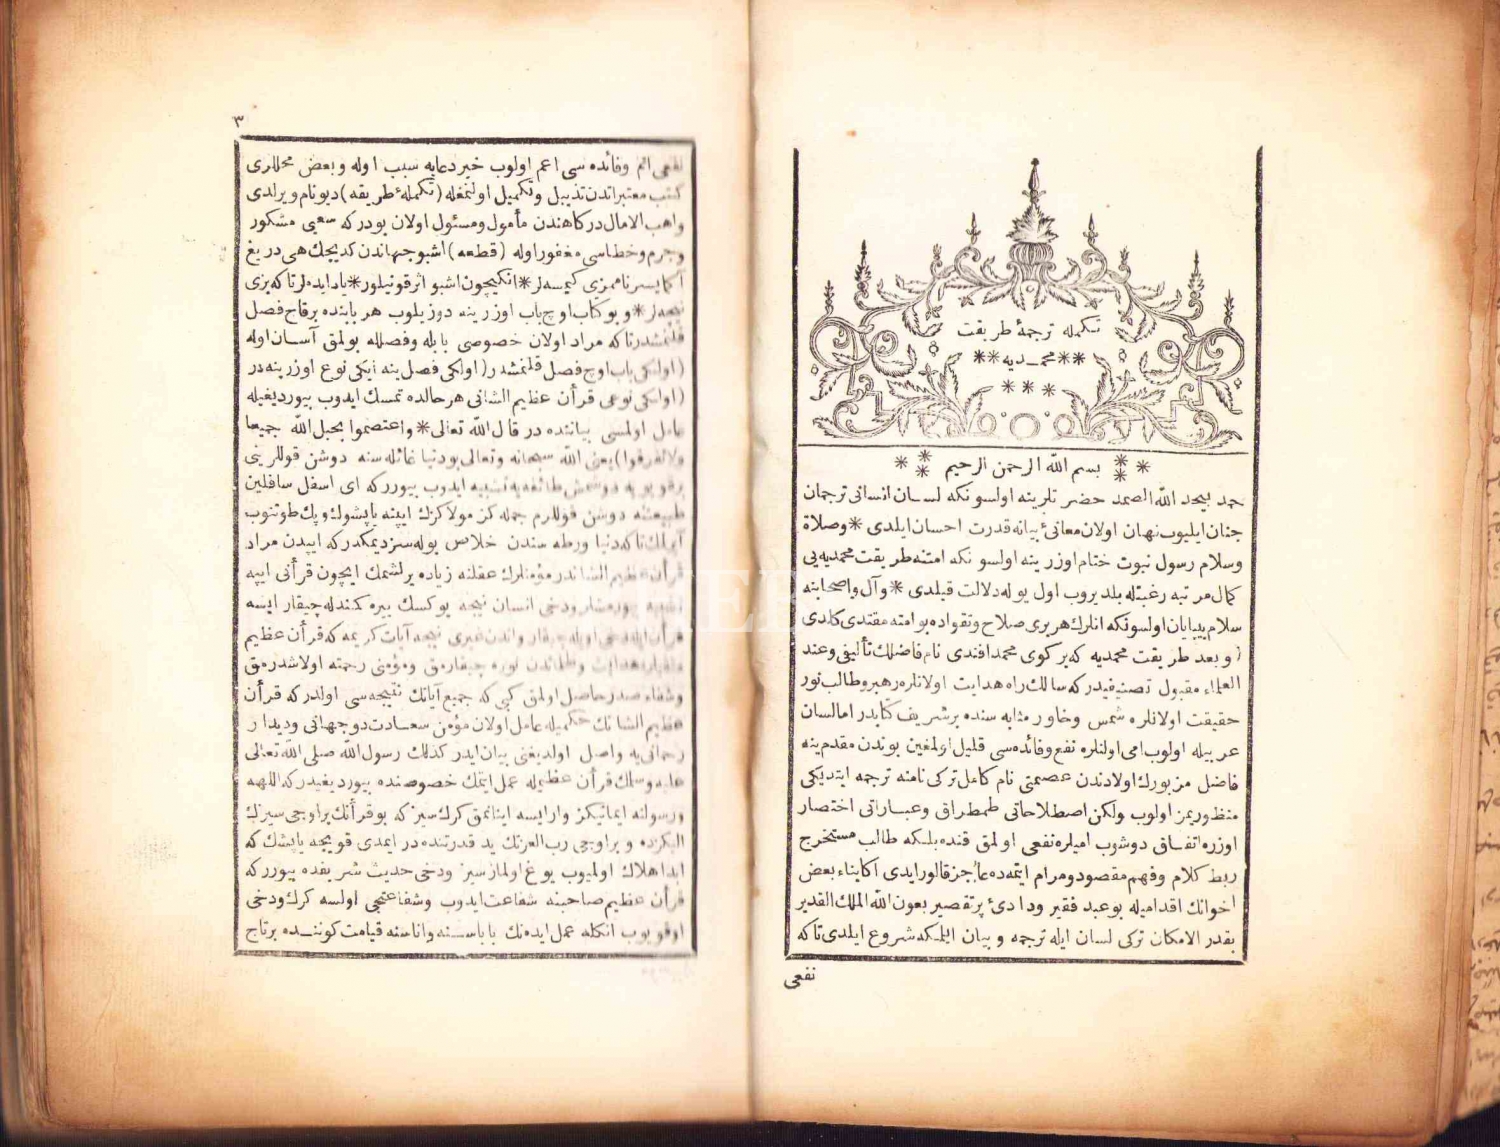 تكمله ترجمهٔ طريقت
**محمديه**
***
بسم الله الرحمن الرحيم
حمد بيحد الله الصمد حضرتلرينه اولسونكه لسان انسانى ترجمان
جنان ايليوب نهان اولان معانىٔ بيانه قدرت احسان ايلدى * وصلاة
وسلام رسول نبوت ختام اوزرينه اولسونكه امتنه طريقت محمديه يى
كمال مرتبه رغبتله بلديروب اول يوله دلالت قيلدى * وآل واصحابنه
سلام بيپايان اولسونكه انلرك هربرى صلاح وتقواده بو امته مقتدى كلدى
( وبعد طريقت محمديه كه بركوى محمد افندى نام فاضلك تأليفى وعند
العلماء مقبول تصنيفيدركه سالك راه هدايت اولانلره رهبر وطالب نور
حقيقت اولانلره شمس وخاور مثابه سنده برشريف كتابدر اما لسان
عربيله اولوب امى اولنلره نفع وفائده سى قليل اولمغين بوندن مقدم ينه
فاضل مزبورك اولادندن عصمتى نام كامل تركى نامنه ترجمه ايتديكى
منظوريمز اولوب ولكن اصطلاحاتى طمطراق وعباراتى اختصار
اوزره اتفاق دوشوب اميلره نفعى اولمق قنده بلكه طالب مستخرج
ربط كلام وفهم مقصود ومرام ايتمه ده عاجز قالور ايدى اكا بناء بعض
اخوانك اقداميله بو عبد فقير ودادئ پرتقصير بعون الله الملك القدير
بقدر الامكان تركى لسان ايله ترجمه وبيان ايلمكه شروع ايلدى تاكه
نفعى
٣
نفعى اتم وفائده سى اعم اولوب خيردعايه سبب اوله وبعض محللرى
كتب معتبراتدن تذييل وتكميل اولنمغله (تكملهٔ طريقه) ديو نام ويرلدى
واهب الامال دركاهندن مأمول ومسئول اولان بودركه سعيى مشكور
وجرم وخطاسى مغفور اوله (قطعه) اشبو جهاندن كديجك هى دريغ
آكايسر ناممزى كيمسه لر * انكيچون اشبو اثر قونيلور * ياد ايده لر تاكه بزى
نيچه لر * وبوكتاب اوچ باب اوزرينه دوزيلوب هر بابنده برقاچ فصل
قلنمشدر تاكه مراد اولان خصوصى بابله وفصلله بولمق آسان اوله
(اولكى باب اوچ فصل قلنمشدر (اولكى فصل ينه ايكى نوع اوزرينه در
(اولكى نوعى قرأن عظيم الشانى هر حالده تمسك ايدوب بيورديغيله
عامل اولمسى بياننده در قال الله تعالى * واعتصموا بحبل الله جميعا
ولا تفرقوا) يعنى الله سبحانه وتعالى بو دنيا غائله سنه دوشن قوللرينى
برقويويه دوشمش طائفه يه تشبيه ايدوب بيوررکه اى اسفل سافلين
طبيعتنه دوشن قوللرم جمله كز مولاكزك ايپنه ياپشوك وپك طوتنوب
آيرلمك تاكه دنيا ورطه سندن خلاص بوله سز ديمكدركه ايپدن مراد
قرأن عظيم الشاندر مؤمنلرك عقلنه زياده يرلشمك ايچون قرأنى ايپه
تشبيه بيورمشلر ودخى انسان نيجه يوكسك يره كمندله چيقار ايسه
قرأن ايله دخى اويله چيقار واندن غيرى نيجه آيات كريمه كه قرأن عظيم
هدايت وظلماتدن نوره چيقارمق ومؤمنى رحمته اولاشدرمق
وشفاء صدر حاصل اولمق كبى كه جميع آياتك نتيجه سى اولدركه قرأن
عظيم الشانك حكميله عامل اولان مؤمن سعادت دوجهانى وديدار
رحمانى يه واصل اولديغنى بيان ايدر كذلك رسول الله صلى الله تعالى
عليه وسلمك قرأن عظيمله عمل ايتمك خصوصنده بيورديغيدركه اللهه
ورسولنه ايمانيكز وارايسه اينانمق كرك سيزكه بو قرأنك براوجى سيزك
اليكزده وبراوجى رب العزتك يد قدرتنده در ايمدى قويجه ياپشك كه
ابدا هلاك اولميوب يوغ اولمازسيز ودخى حديث شريفده بيوررکه
قرأن عظيم صاحبنه شفاعت ايدوب وشفاعتجى اولسه كرك ودخى
اوقويوب انكله عمل ايدنك باباسنه واناسنه قيامت كوننده برتاج